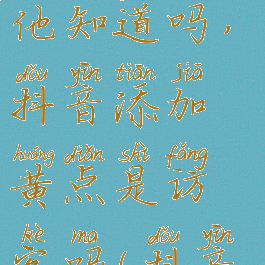 他知道吗，
dǒu yīn tiān jiā
抖音添加
huáng diǎn shì fǎng
黄点是访
kè ma dǒu yīn
客吗(抖音